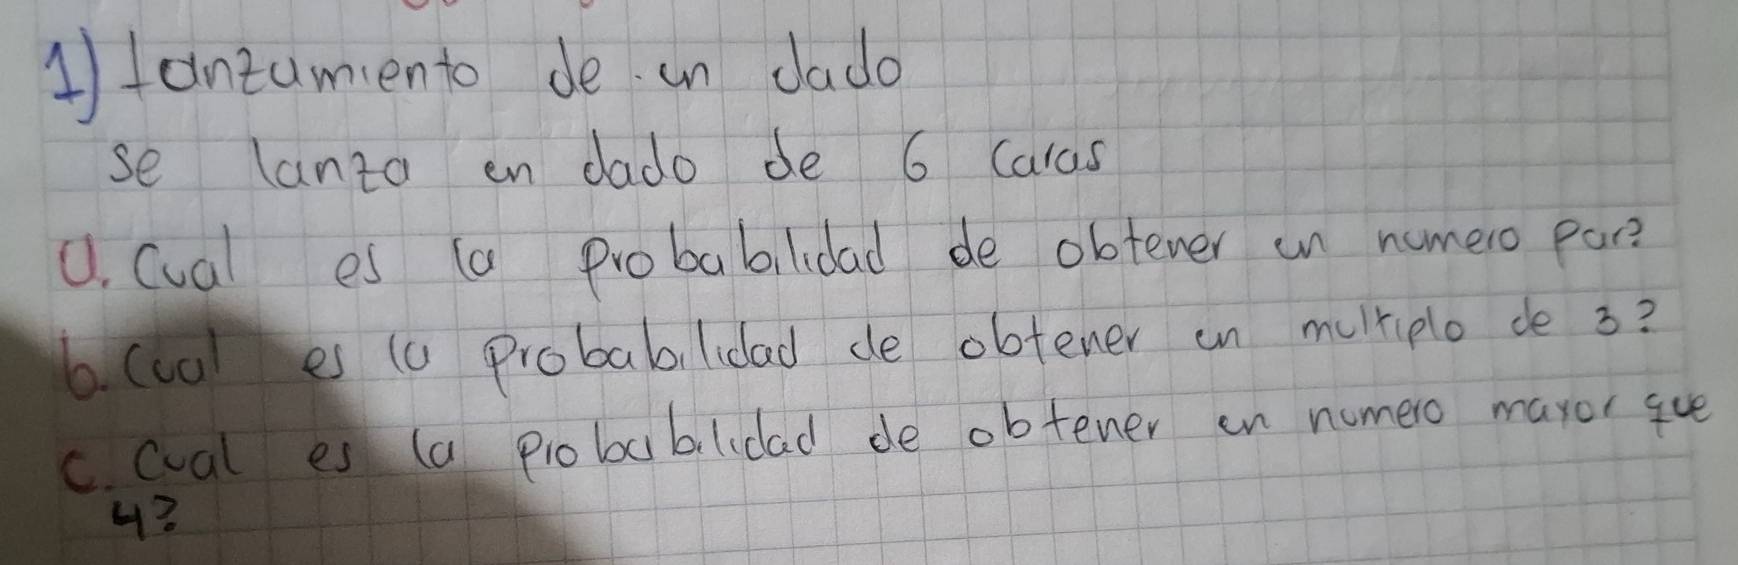 1) Lanzamiento de un dado
se lanza un dado de 6 caras
a. Cual es la probabilidad de obtener un numero par?
b. Cual es la probabilidad de obtener un multiplo de 3?
c. Cual es la probabilidad de obtener un numero mayor que
4?